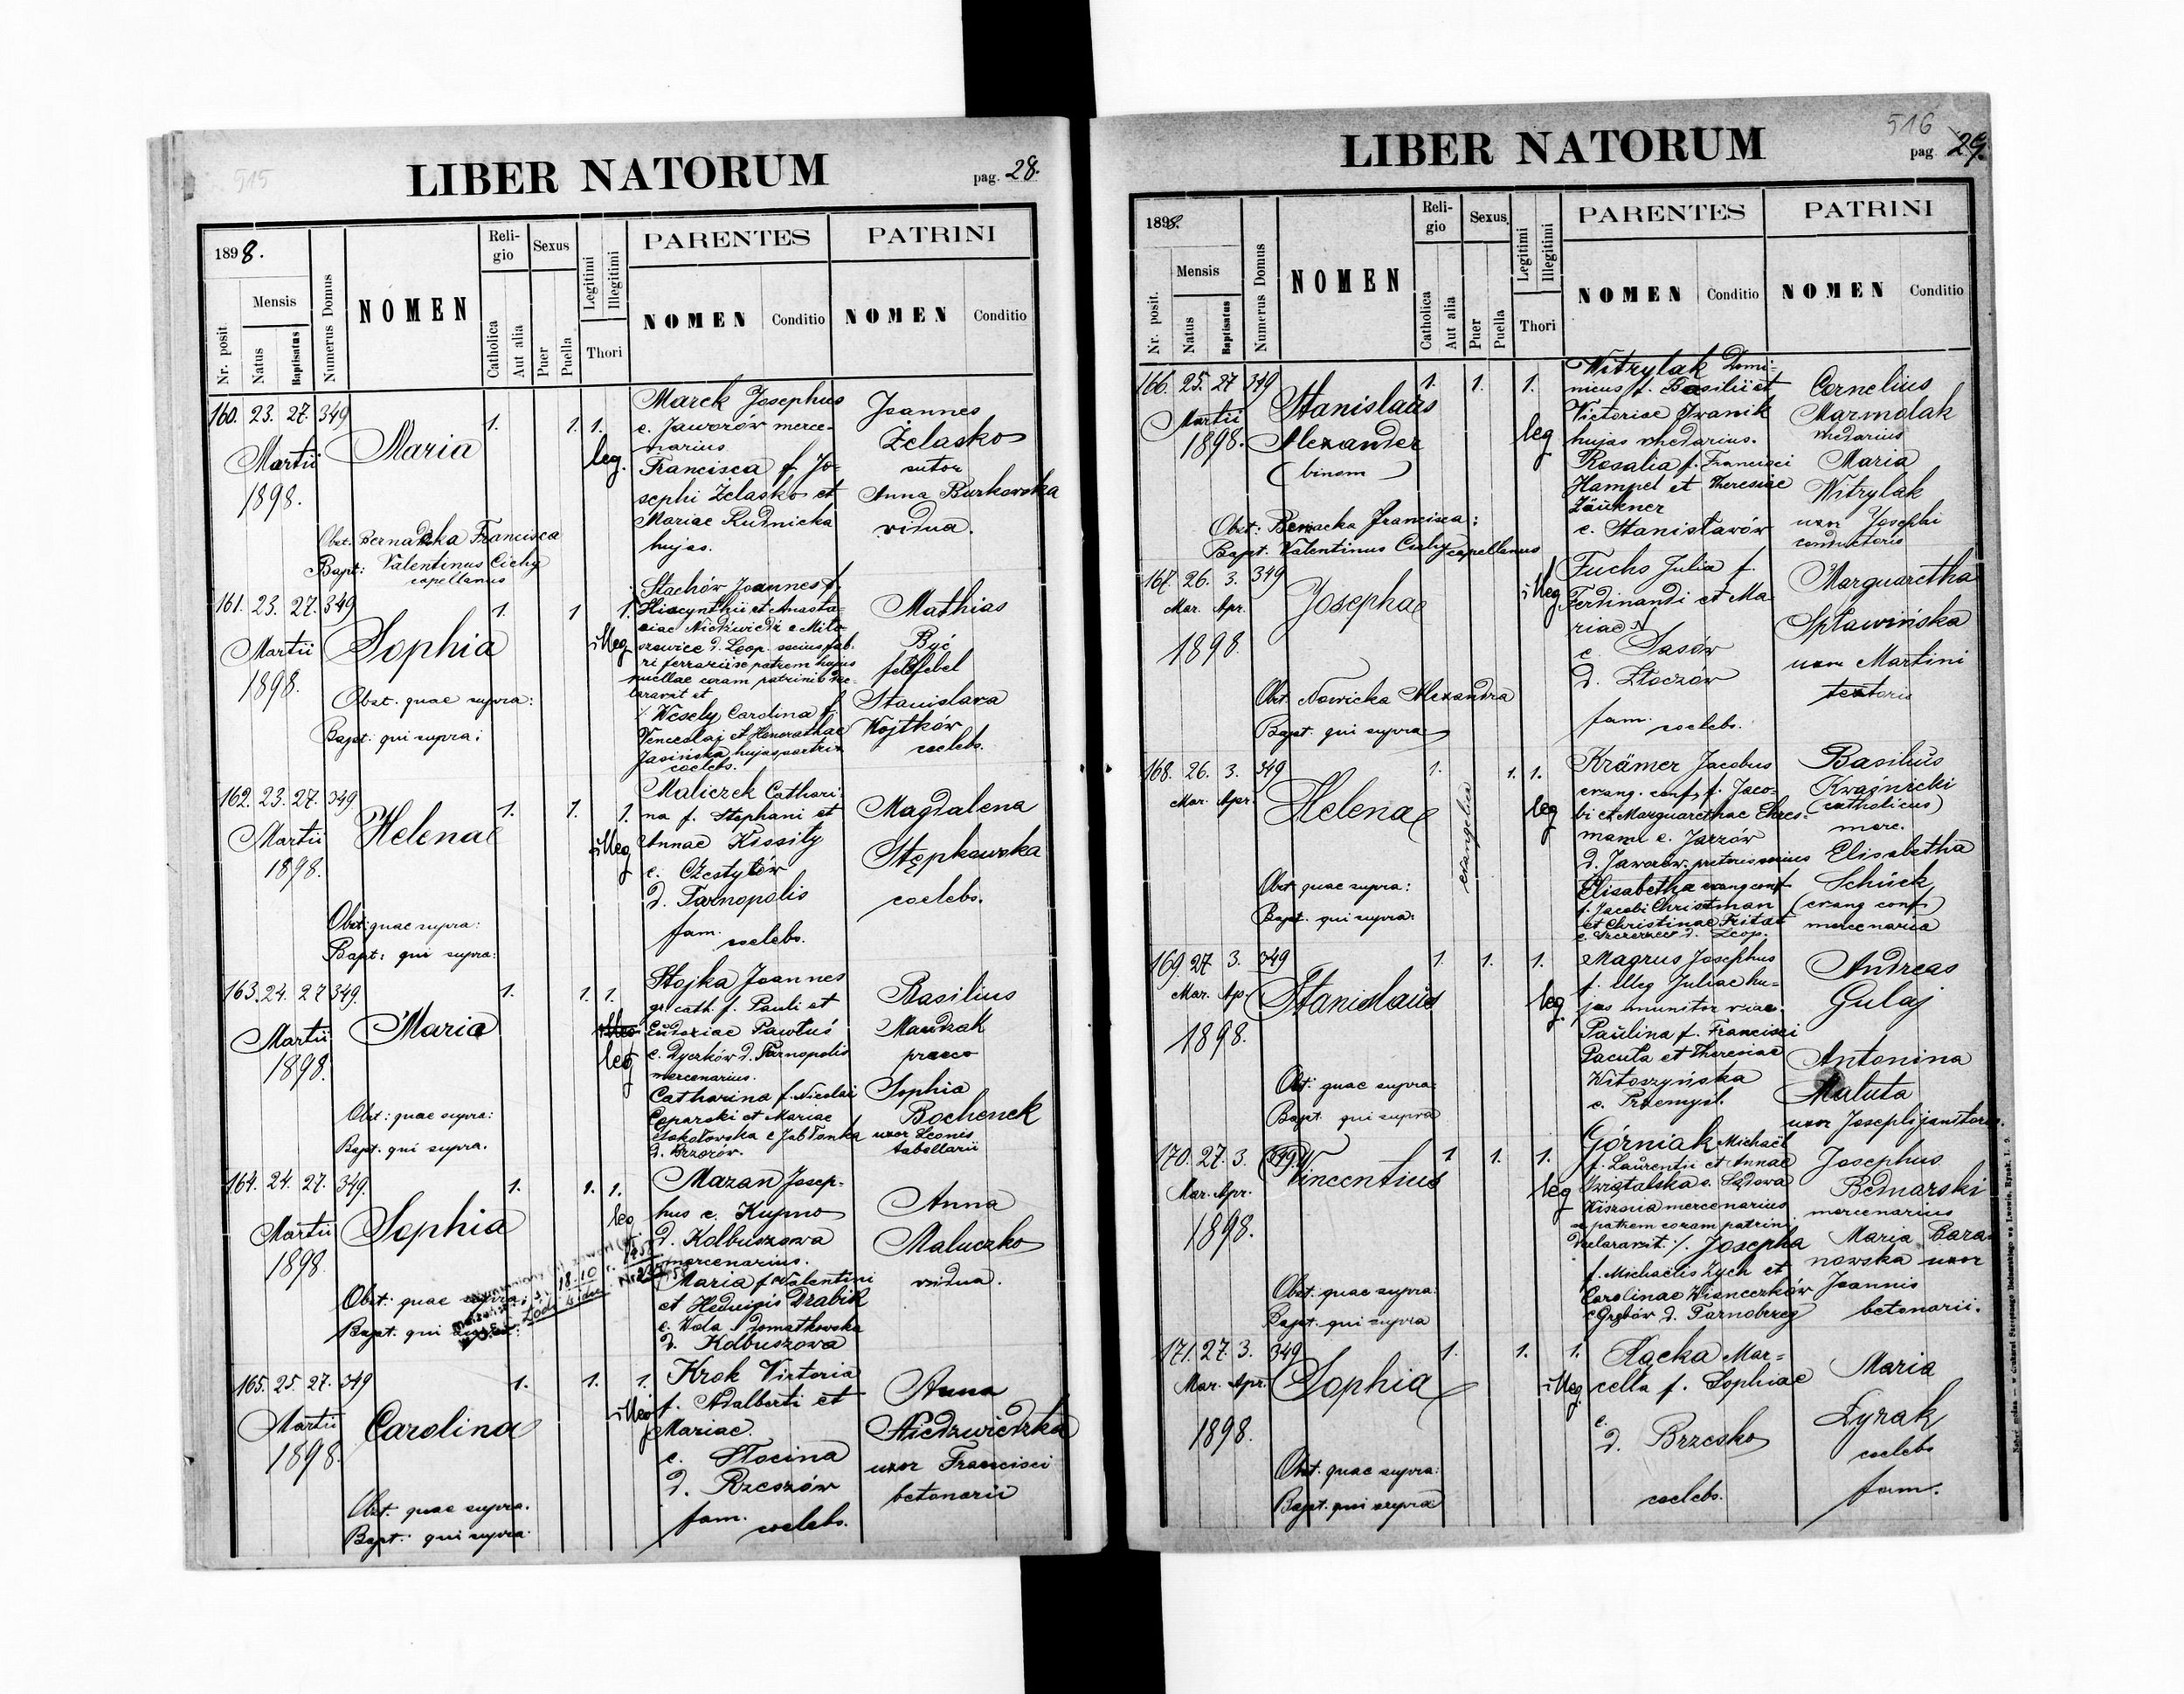 515
LIBER NATORUM
pag. 28.
1898.
Nr. posit
Mensis
Natus
Baptisatus
Numerus Domus
NOMEN
Reli-
gio
Catholica
Aut alia
Sexus
Puer
Puella
Legitimi
Illegitimi
Thori
PARENTES
NOMEN
Conditio
PATRINI
NOMEN
Conditio
160. 23. 27. 349
Martii
1898.
Maria
1. 1. 1.
leg.
Marek Josephus
e. Jaworów merce-
narius
Francisca f. Jo-
sephi Żelasko et
Mariae Rudnicka
hujas.
Joannes
Żelasko
sutor
Anna Burkowska
vidua.
Obst. Francisca
Bapt: Valentinus Cichy
capellanus
161. 23. 27. 349
Martii
1898.
Sophia
1. 1 1.
illeg
Stachów Joannes f.
Hiacynthii et Anasta-
siae Niedźwiedź e Miło-
szowice d. Leop. socius fab-
ri ferrarii se patrem hujus
puellae coram patrinis dec-
laravit et
Wesely Carolina f.
Venceslaj et Honorathae
Jasińska hujas sartrix
coelebs.
Mathias
Być
feldfebel
Stanislava
Wojtków
coelebs.
Obst. quae supra:
Bapt: qui supra:
162. 23. 27. 349
Martii
1898.
Helena
1. 1. 1.
illeg
Maliczek Cathari-
na f. Stephani et
Annae Kissity
e. Czestyłów
d. Tarnopolis
fam. coelebs.
Magdalena
Stępkowska
coelebs.
Obst: quae supra:
Bapt: qui supra:
163. 24. 27 349.
Martii
1898.
Maria
1. 1. 1.
leg
Stojka Joannes
gr cath. f. Pauli et
Eudoxiae Pawluś
e. Dyczków d. Tarnopolis
mercenarius.
Catharina f. Nicolai
Ceparski et Mariae
Sokołowska e Jabłonka
d. Brzozów.
Basilius
Mandzak
praeco
Sophia
Bochenek
uxor Leonis
tabellarii
Obst: quae supra:
Bapt: qui supra.
164. 24. 27. 349.
Martii
1898.
Sophia
1. 1. 1.
leg
Mazan Josep-
hus e. Kupno
d. Kolbuszowa
mercenarius.
Maria f. Valentini
et Hedwigis Drabik
e. Wola Domatkowska
d. Kolbuszowa
Anna
Maluczko
vidua.
Obst: quae supra:
Bapt. qui
18.10
165. 25. 27. 349
Martii
1898.
Carolina
1. 1. 1.
illeg
Krok Victoria
f. Adalberti et
Mariae.
e. Słocina
d. Rzeszów
fam. coelebs.
Anna
Niedzwiedzka
uxor Francisci
betonarii
Obst. quae supra.
Bapt: qui supra
516
LIBER NATORUM
pag 29.
1898.
Nr. posit.
Mensis
Natus
Baptisatus
Numerus Domus
NOMEN
Reli-
gio
Catholica
Aut alia
Sexus
Puer
Puella
Legitimi
Illegitimi
Thori
PARENTES
NOMEN
Conditio
PATRINI
NOMEN
Conditio
166. 25. 27 349
Martii
1898.
Stanislaus
Alexander
(binom)
1. 1. 1.
leg
Witrylak Domi-
nicus f. Basilii et
Victoriae Iwanik
hujas rhedarius.
Rosalia f. Francisci
Hampel et Theresiae
e. Stanisławów
Cornelius
Marmolak
rhedarius
Maria
Witrylak
uxor Josephi
conductoris
Obst: Francisca:
Bapt. Valentinus Cichy capellanus
167. 26. 3. 349
Mar. Apr.
1898.
Josepha
illeg
Fuchs Julia f.
Ferdinandi et Ma-
riae N
e. Sasów
d. Złoczów
fam. coelebs.
Marguaretha
Spławińska
uxor Martini
textoris
Obst. Nowicka Alexandra
Bapt. qui supra
168. 26. 3. 349
Mar. Apr.
Helena
1.
evangelica
1. 1.
leg
Krämer Jacobus
evang. conf. f. Jaco-
bi et Marguarethae Ehres-
mann e. Jazzów
d. Jaworów pistoris socius
Elisabetha evang conf
f. Jacobi Christman
et Christinae Fritat
e. Szczerzec d. Leop.
Basilius
Kwaśnicki
(catholicus)
merc.
Elisabetha
Schück
(evang conf)
mercenaria
Obst quae supra:
Bapt. qui supra:
169. 27 3. 349
Mar. Ap.
1898.
Stanislaus
1. 1. 1.
leg.
Magrus Josephus
f. illeg Juliae hu-
jas munitor viae.
Paulina f. Francisci
Pacuła et Theresiae
Witoszyńska
e. Przemyśl.
Andreas
Gulaj
Antonina
Maluta
uxor Josephi janitoris.
Obst: quae supra:
Bapt. qui supra
170. 27. 3. 349
Mar. Apr.
1898.
Vincentius
1 1. 1.
leg
Górniak Michaël
f. Laurentii et Annae
Świątalska e. Sądowa
Wisznia mercenarius
se patrem coram patrinis
declaravit ./. Josepha
f. Michaelis Zych et
Carolinae Wianeczków
e Grębów d. Tarnobrzeg
Josephus
Bednarski
mercenarius
Maria Bara-
nowska uxor
Joannis
betonarii.
Obst: quae supra:
Bapt. qui supra
171. 27. 3. 349
Mar. Apr.
1898.
Sophia
1. 1. 1.
illeg
Łącka Mar-
cella f. Sophiae
e.
d. Brzesko
coelebs.
Maria
Łyzak
coelebs
fam.
Obst. quae supra:
Bapt. qui supra